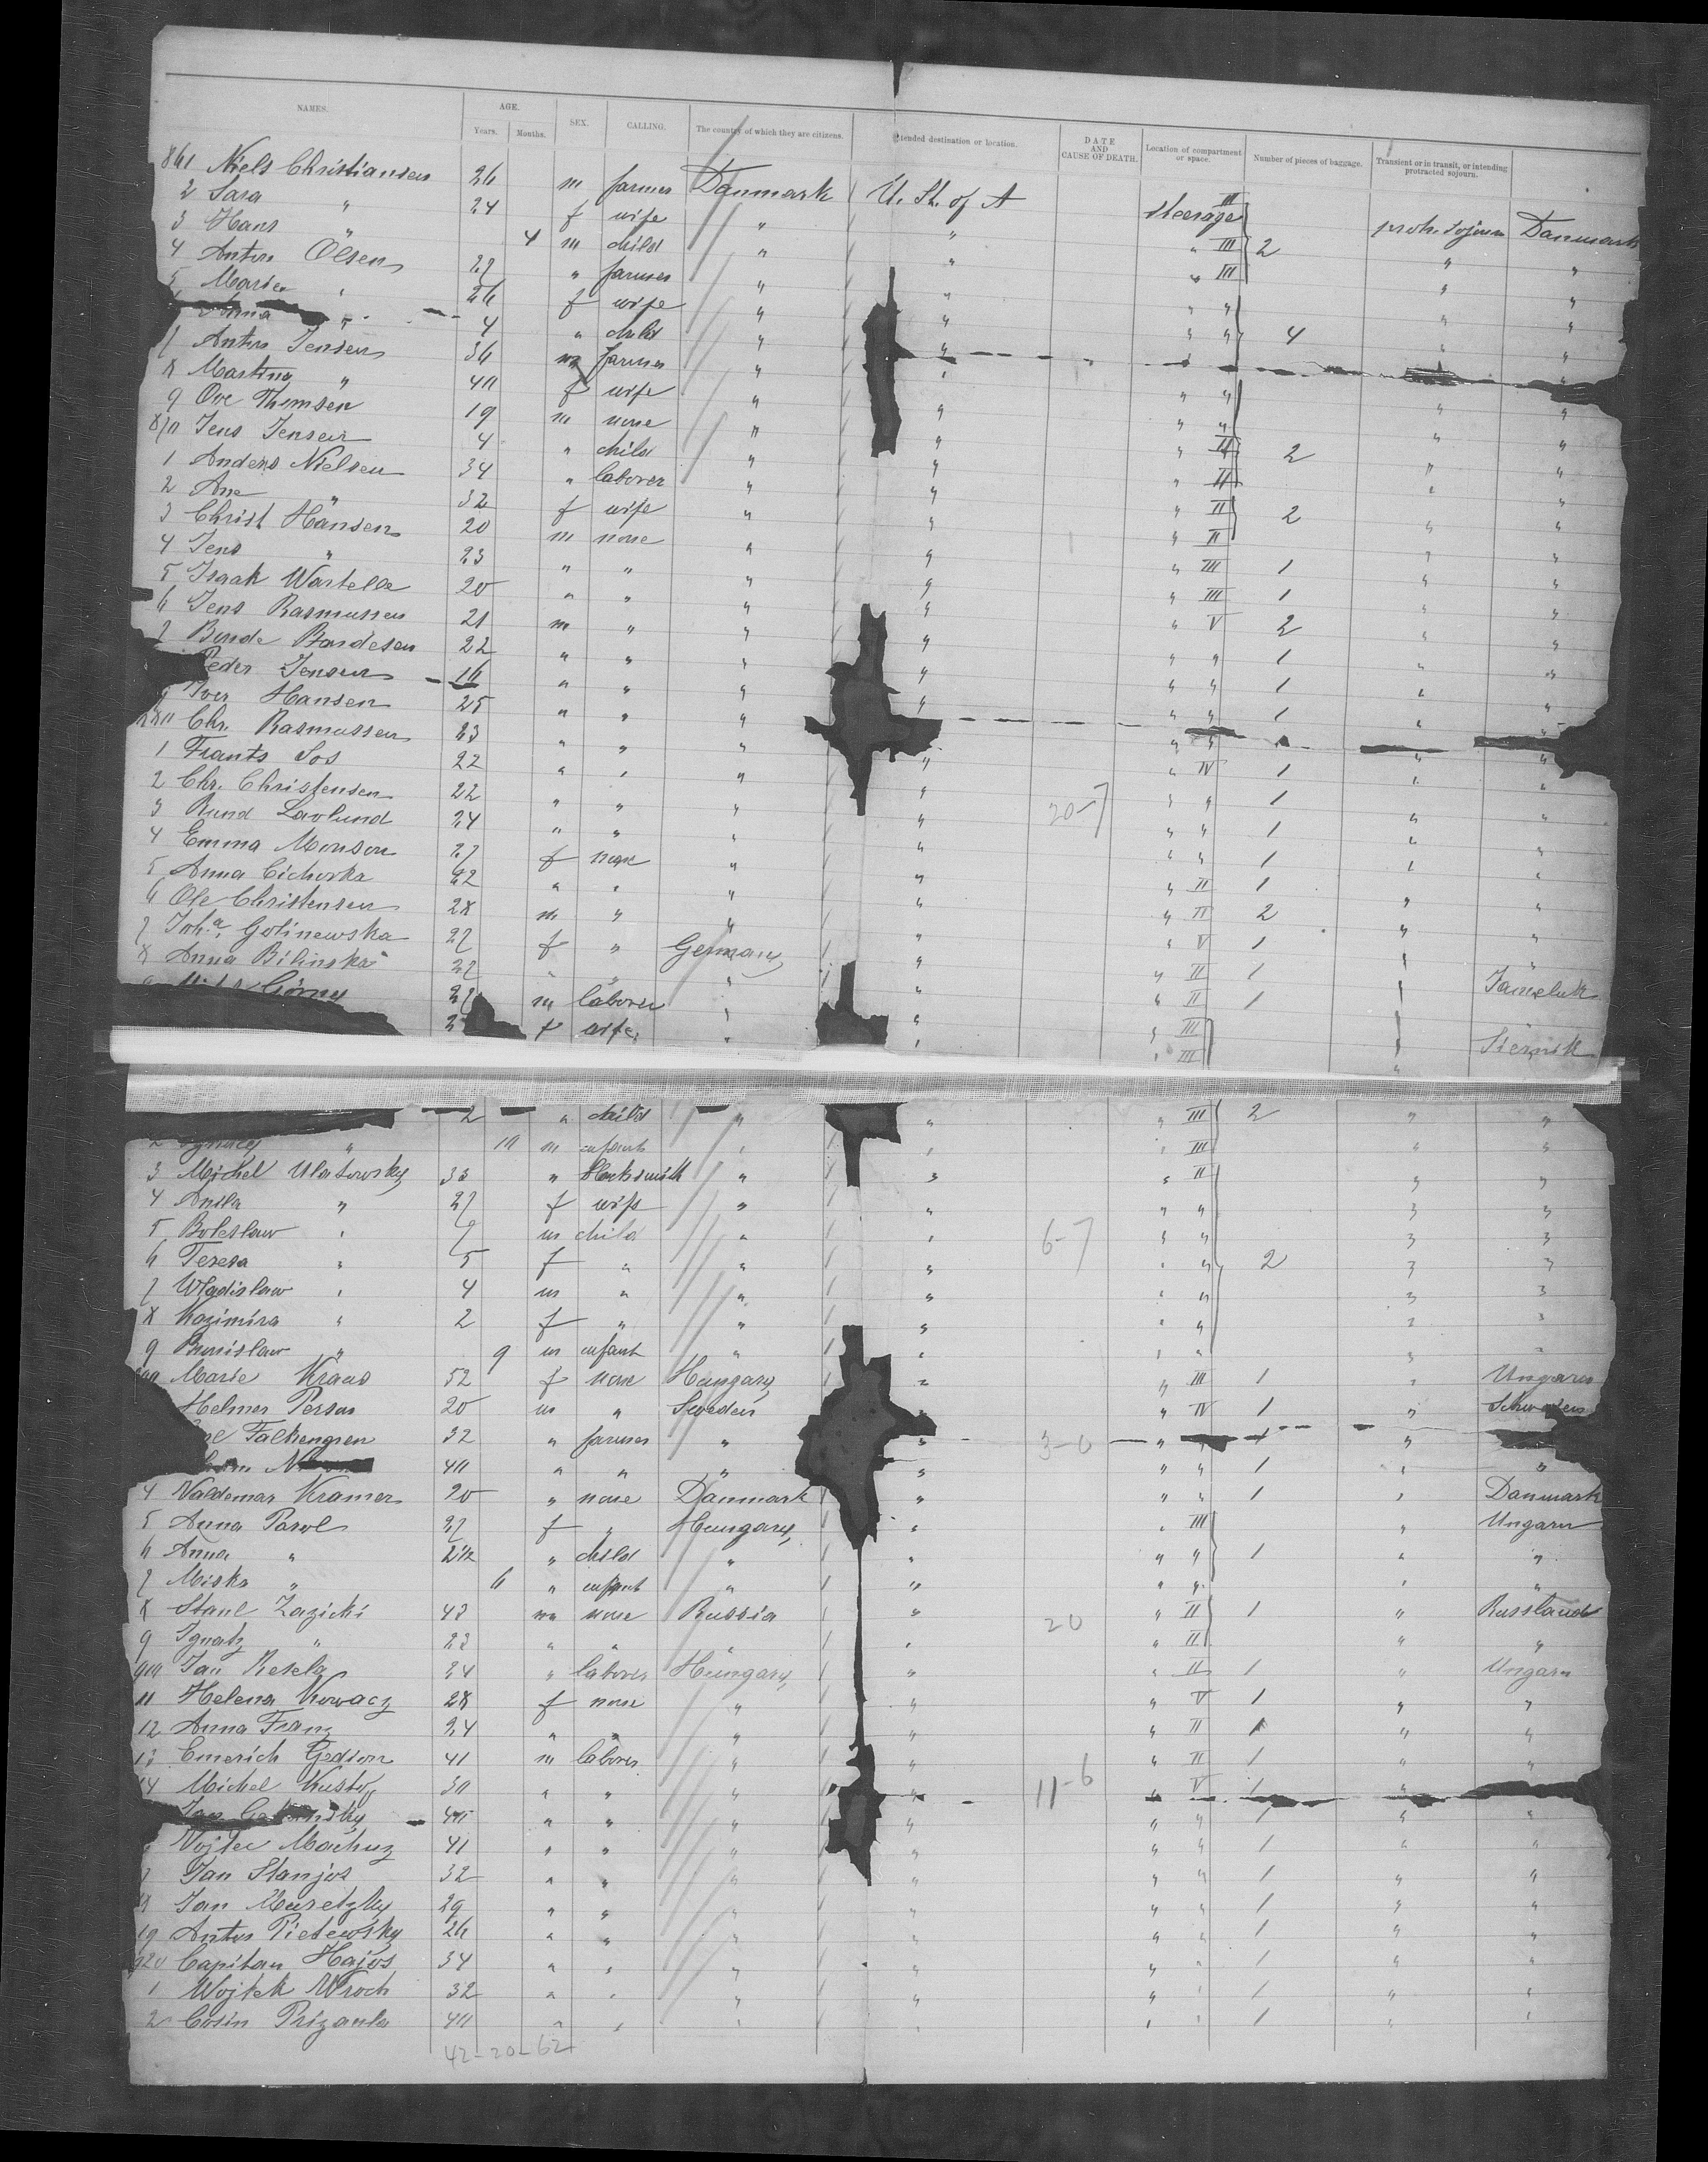 NAMES. AGE. Years. Months. SEX. CALLING. The country of which they are citizens. Intended destination or location. DATE AND CAUSE OF DEATH. Location of compartment or space. Number of pieces of baggage. Transient or in transit, or intending protracted sojourn.
861 Niels Christiansen 26 m farmer Danmark U. St. of A steerage III protr. sojourn Danmark
2 Sara " 24 f wife " " " III 2 " "
3 Hans " 4 m child " " " III " "
4 Anton Olsen 27 " farmer " " " " " "
5 Marie " 26 f wife " " " " 4 " "
Anna " 4 " child " " " "
7 Anton Jensen 36 m farmer " " " " " "
8 Martine " 40 f wife " " " " " "
9 Ove Thomsen 19 m none " " " II 2 " "
870 Jens Jensen 4 " child " " " II " "
1 Anders Nielsen 34 " laborer " " " II 2 " "
2 Ane " 32 f wife " " " II " "
3 Christ Hansen 20 m none " " " III 1 " "
4 Jens " 23 " " " " " III 1 " "
5 Isaak Wartelle 20 " " " " " V 2 " "
6 Jens Rasmussen 21 m " " " " " 1 " "
7 Bonde Bondesen 22 " " " " " " 1 " "
Peder Jensen 16 " " " " " " 1 " "
9 Iver Hansen 25 " " " " " " " "
880 Chr. Rasmussen 23 " " " " " IV 1 " "
1 Frants Sos 22 " " " " " " 1 " "
2 Chr. Christensen 22 " " " " 20-7 " " 1 " "
3 Lavlund 24 " " " " " " 1 " "
4 Emma Monson 27 f none " " " II 1 " "
5 Anna Cichorka 22 " " " " " II 2 " "
6 Ole Christensen 28 m " " " " V 1 " "
7 Joh.a Golinewska 27 f " Germany " " II 1 "
8 Anna Bilinska 27 " " " " " II 1 "
Górny 27 m laborer " " " III "
f wife " " " III "
2 " child " " " III 2 " "
2 Ignacy " 10 m infant " " " III " "
3 Michel Ulatowsky 33 " Locksmith " " " II " "
4 " 27 f wife " " " " " "
5 Boleslaw " 7 m child " " 6-7 " " " "
6 Teresa " 5 f " " " " " 2 " "
7 Wladislaw " 4 m " " " " " " "
8 Kazimira " 2 f " " " " " " "
9 Bronislaw " 9 m infant " " " " " "
900 Marie Kraus 52 f none Hungary " " III 1 " Ungarn
Helmer Person 20 m " Sweden " " IV 1 " Schweden
Falkengren 32 " farmer " " 3-0 " 1 "
40 " " " " " " 1 " "
4 Valdemar Kramer 20 " none Danmark " " " 1 " Danmark
5 Anna Pavol 27 f " Hungary " " III " Ungarn
6 Anna " 2 1/2 " child " " " " 1 " "
7 Miska " 6 " infant " " " " " "
8 Stanl Zazicki 43 m none Russia " 20 " II 1 " Russland
9 Ignatz " 23 " " " " " II " "
910 Jan Resela 24 " laborer Hungary " " II 1 " Ungarn
11 Helena Kowacz 28 f none " " " V 1 " "
12 Anna Franz 24 " " " " " II 1 " "
13 Emerich Gedion 41 m laborer " " " II 1 " "
14 Michel Kustof 30 " " " " 11-6 " V 1 "
Jan " " " " " " 1 " "
Vojtec Machuz 41 " " " " " " 1 " "
7 Jan Stanjos 32 " " " " " " 1 " "
18 Jan Muretzky 29 " " " " " " 1 " "
19 Anton Pietewsky 26 " " " " " " 1 " "
920 Capitan Hajos 34 " " " " " " 1 " "
1 Wojtek Wroch 32 " " " " " " 1 " "
2 Cosin Prizanla 40 " " " " " " 1 " "
42-20-62